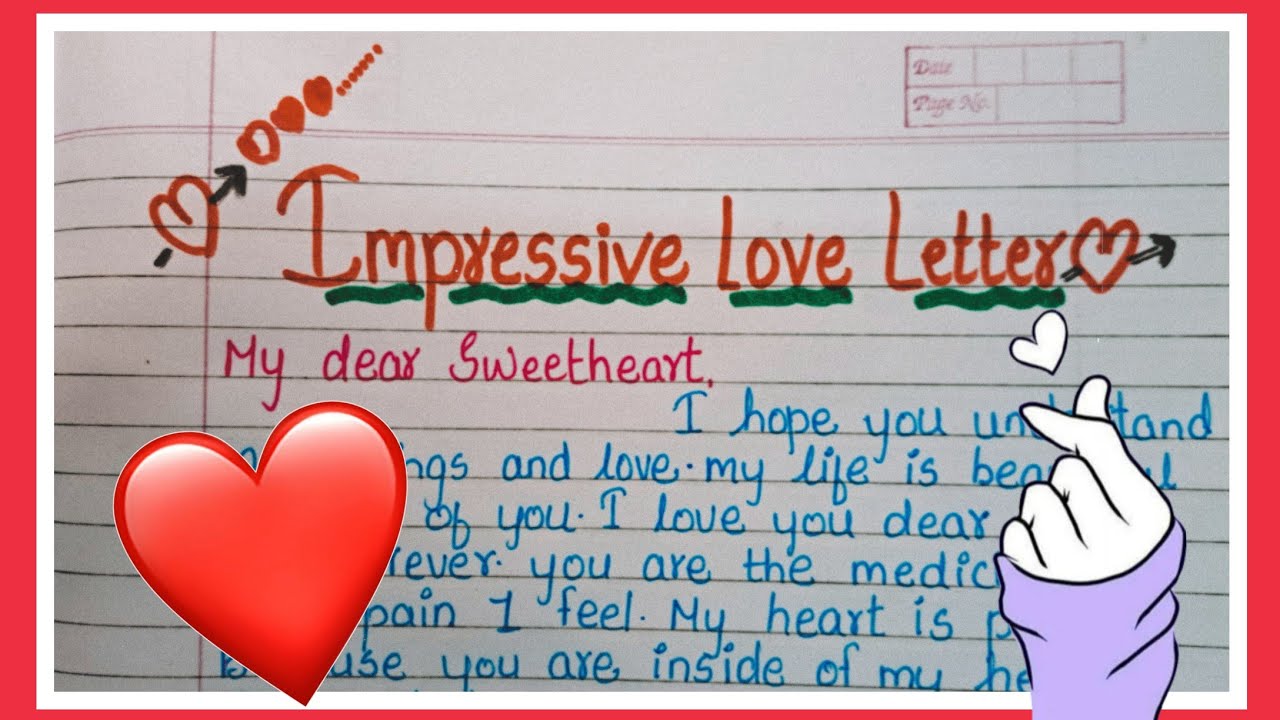 Date
Page No.
Impressive Love Letter
My dear Sweetheart,
I hope you understand
and love. my life is beautiful
of you. I love you dear
you are the
pain I feel. My heart is
Because you are inside of my